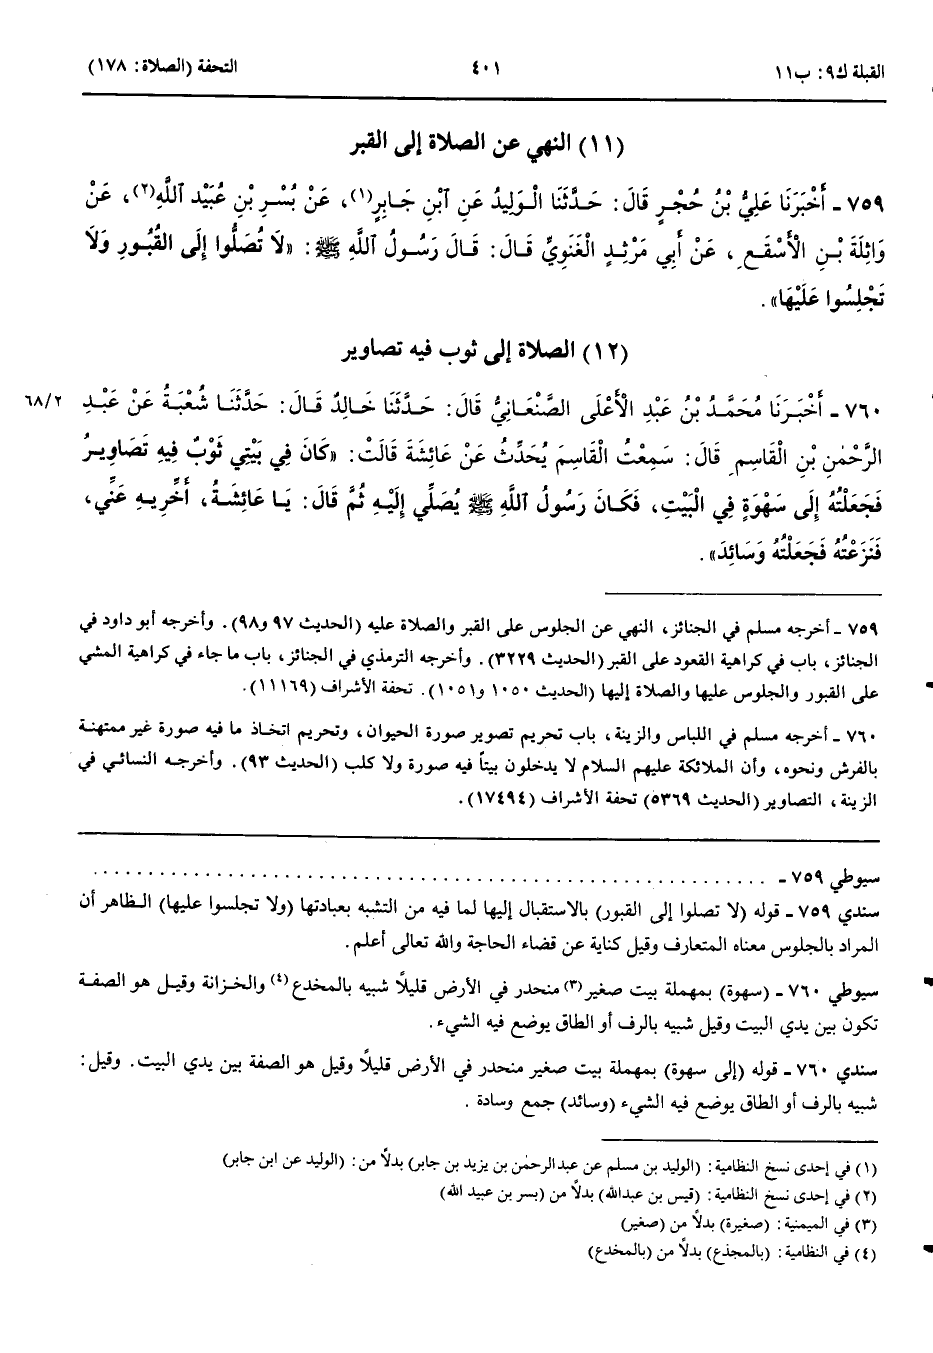 القبلة ك٩: ب١١
٤٠١
التحفة (الصلاة: ١٧٨)
(١١) النهي عن الصلاة إلى القبر
٧٥٩ - أَخْبَرَنَا عَلِيُّ بْنُ حُجْرٍ قَالَ: حَدَّثَنَا الْوَلِيدُ عَنِ ٱبْنِ جَابِرٍ(١)، عَنْ بُسْرِ بْنِ عُبَيْدِ ٱللَّهِ(٢)، عَنْ
وَاثِلَةَ بْنِ الْأَسْقَعِ، عَنْ أَبِي مَرْثِدٍ الْغَنَوِيِّ قَالَ: قَالَ رَسُولُ ٱللَّهِ ﷺ: «لَا تُصَلُّوا إِلَى الْقُبُورِ وَلَا
تَجْلِسُوا عَلَيْهَا».
(١٢) الصلاة إلى ثوب فيه تصاوير
٧٦٠ - أَخْبَرَنَا مُحَمَّدُ بْنُ عَبْدِ الْأَعْلَى الصَّنْعَانِيُّ قَالَ: حَدَّثَنَا خَالِدٌ قَالَ: حَدَّثَنَا شُعْبَةُ عَنْ عَبْدِ ٦٨/٢
الرَّحْمٰنِ بْنِ الْقَاسِمِ قَالَ: سَمِعْتُ الْقَاسِمَ يُحَدِّثُ عَنْ عَائِشَةَ قَالَتْ: «كَانَ فِي بَيْتِي ثَوْبٌ فِيهِ تَصَاوِيرُ
فَجَعَلْتُهُ إِلَى سَهْوَةٍ فِي الْبَيْتِ، فَكَانَ رَسُولُ ٱللَّهِ ﷺ يُصَلِّي إِلَيْهِ ثُمَّ قَالَ: يَا عَائِشَةُ، أَخِّرِيهِ عَنِّي،
فَنَزَعْتُهُ فَجَعَلْتُهُ وَسَائِدَ».
٧٥٩ - أخرجه مسلم في الجنائز، النهي عن الجلوس على القبر والصلاة عليه (الحديث ٩٧ و٩٨). وأخرجه أبو داود في
الجنائز، باب في كراهية القعود على القبر (الحديث ٣٢٢٩). وأخرجه الترمذي في الجنائز، باب ما جاء في كراهية المشي
على القبور والجلوس عليها والصلاة إليها (الحديث ١٠٥٠ و١٠٥١). تحفة الأشراف (١١١٦٩).
٧٦٠ - أخرجه مسلم في اللباس والزينة، باب تحريم تصوير صورة الحيوان، وتحريم اتخاذ ما فيه صورة غير ممتهنة
بالفرش ونحوه، وأن الملائكة عليهم السلام لا يدخلون بيتاً فيه صورة ولا كلب (الحديث ٩٣). وأخرجه النسائي في
الزينة، التصاوير (الحديث ٥٣٦٩) تحفة الأشراف (١٧٤٩٤).
سيوطي ٧٥٩ - . . . . . . . . . . . . . . . . . . . . . . . . . . . . . . . . . . . . . . . . . . . . . . . . . . . . . . . .
سندي ٧٥٩ - قوله (لا تصلوا إلى القبور) بالاستقبال إليها لما فيه من التشبه بعبادتها (ولا تجلسوا عليها) الظاهر أن
المراد بالجلوس معناه المتعارف وقيل كناية عن قضاء الحاجة والله تعالى أعلم.
سيوطي ٧٦٠ - (سهوة) بمهملة بيت صغير(٣) منحدر في الأرض قليلاً شبيه بالمخدع(٤) والخزانة وقيل هو الصفة
تكون بين يدي البيت وقيل شبيه بالرف أو الطاق يوضع فيه الشيء.
سندي ٧٦٠ - قوله (إلى سهوة) بمهملة بيت صغير منحدر في الأرض قليلاً وقيل هو الصفة بين يدي البيت. وقيل:
شبيه بالرف أو الطاق يوضع فيه الشيء (وسائد) جمع وسادة.
(١) في إحدى نسخ النظامية: (الوليد بن مسلم عن عبدالرحمٰن بن يزيد بن جابر) بدلاً من: (الوليد عن ابن جابر)
(٢) في إحدى نسخ النظامية: (قيس بن عبدالله) بدلاً من (بسر بن عبيد الله)
(٣) في الميمنية: (صغيرة) بدلاً من (صغير)
(٤) في النظامية: (بالمجذع) بدلاً من (بالمخدع)